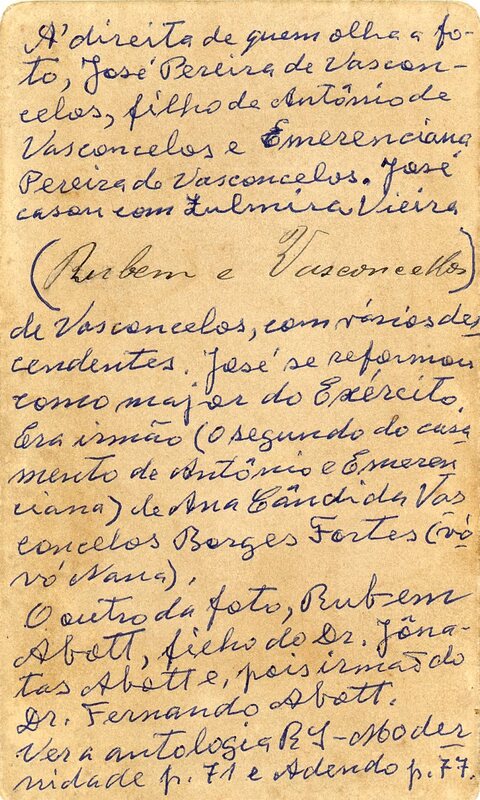 À direita de quem olha a fo-
to, José Pereira de Vascon-
celos, filho de Antônio de
Vasconcelos e Emerenciana
Pereira de Vasconcelos. José
casou com Zulmira Vieira
(Rubem e Vasconcellos)
de Vasconcelos, com vários des
cendentes. José se reformou
como major do Exército.
Era irmão (o segundo do casa
mento de Antônio e Emeren
ciana) de Ana Cândida Vas
concelos Borges Fortes (vo
vó Nana).
O outro da foto, Rubem
Abott, filho do Dr. Jôna-
tas Abott e, pois irmão do
Dr. Fernando Abott.
Ver a antologia RS-Moder
nidade p. 71 e Adendo p. 77.